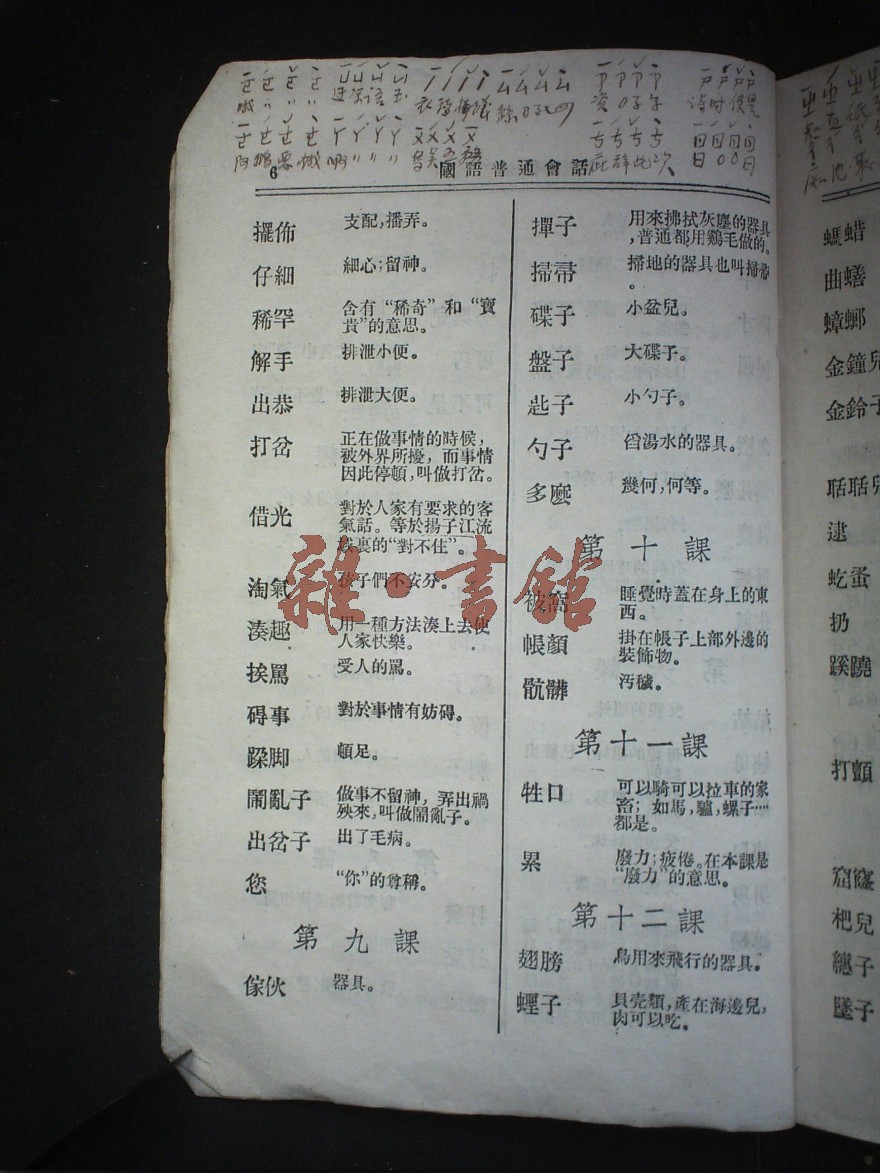 6
國語普通會話
擺佈 支配，播弄。
仔細 細心；留神。
稀罕 含有“稀奇”和“寶
貴”的意思。
解手 排泄小便。
出恭 排泄大便。
打岔 正在做事情的時候，
被外界所擾，而事情
因此停頓，叫做打岔。
借光 對於人家有要求的客
氣話。等於揚子江流
域裏的“對不住”。
淘氣 孩子們不安分。
湊趣 用一種方法湊上去使
人家快樂。
挨罵 受人的罵。
碍事 對於事情有妨碍。
跺脚 頓足。
鬧亂子 做事不留神，弄出禍
殃來，叫做鬧亂子。
出岔子 出了毛病。
您 “你”的尊稱。
第九課
傢伙 器具。
撣子 用來拂拭灰塵的器具
，普通都用鷄毛做的。
掃帚 掃地的器具也叫掃帚
。
碟子 小盆兒。
盤子 大碟子。
匙子 小勺子。
勺子 舀湯水的器具。
多麼 幾何，何等。
第十課
被窩 睡覺時蓋在身上的東
西。
帳顏 掛在帳子上部外邊的
裝飾物。
骯髒 汚穢。
第十一課
牲口 可以騎可以拉車的家
畜；如馬，驢，螺子…
都是。
累 廢力；疲倦。在本課是
“廢力”的意思。
第十二課
翅膀 鳥用來飛行的器具。
蟶子 貝壳類，產在海邊兒，
肉可以吃。
雜·書館
螞蜡
曲蟮
蟑螂
金鐘兒
金鈴子
聒聒兒
逮
虼蚤
扔
蹊蹺
打顫
窟窿
杷兒
繐子
墜子